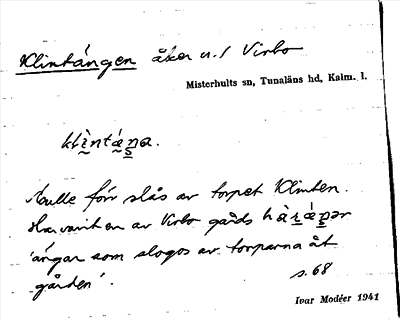 Klintängen åker n. 1 Virbo
Misterhults sn, Tunaläns hd, Kalm. l.
klìntáŋa.
Skulle förr slås av torpet Klinten.
Har varit en av Virbo gårds
'ängar som slogos av torparna åt
gården'.
s. 68
Ivar Modéer 1941